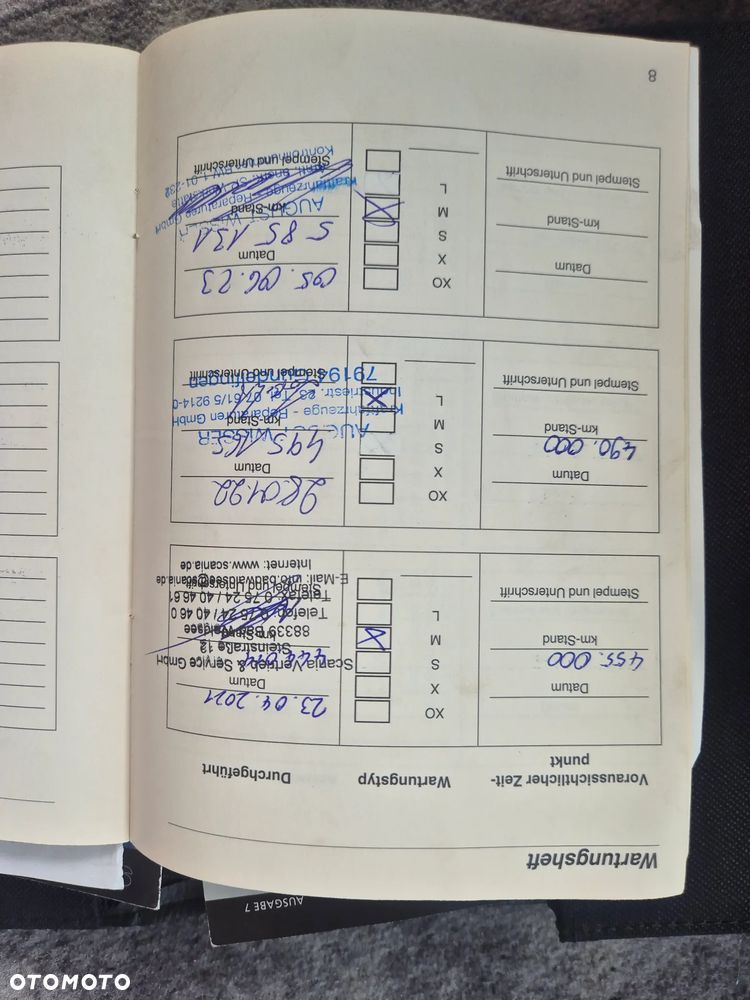 Wartungsheft
Voraussichtlicher Zeit-
punkt
Wartungstyp
Durchgeführt
Datum
455.000
km-Stand
Stempel und Unterschrift
XO
X
S
M
L
23.04.2021
Datum
Scania Vertrieb & Service GmbH
Steinstraße 12
km-Stand
88339 Bad Waldsee
Telefon: 0 75 24 / 40 46 0
Telefax: 0 75 24 / 40 46 61
Stempel und Unterschrift
E-Mail: info.badwaldsee@scania.de
Internet: www.scania.de
Datum
490.000
km-Stand
Stempel und Unterschrift
XO
X
S
M
L
28.01.22
Datum
495 165
km-Stand
AUGUST WISSER
Kraftfahrzeuge - Reparaturen GmbH
Industriestr. 23 Tel. 07 61/5 9214-0
79194 Gundelfingen
Stempel und Unterschrift
Datum
km-Stand
Stempel und Unterschrift
XO
X
S
M
L
05.06.23
Datum
585 131
km-Stand
AUGUST WISSER
Kraftfahrzeuge - Reparaturen GmbH
Stempel und Unterschrift
8
AUSGABE 7
OTOMOTO